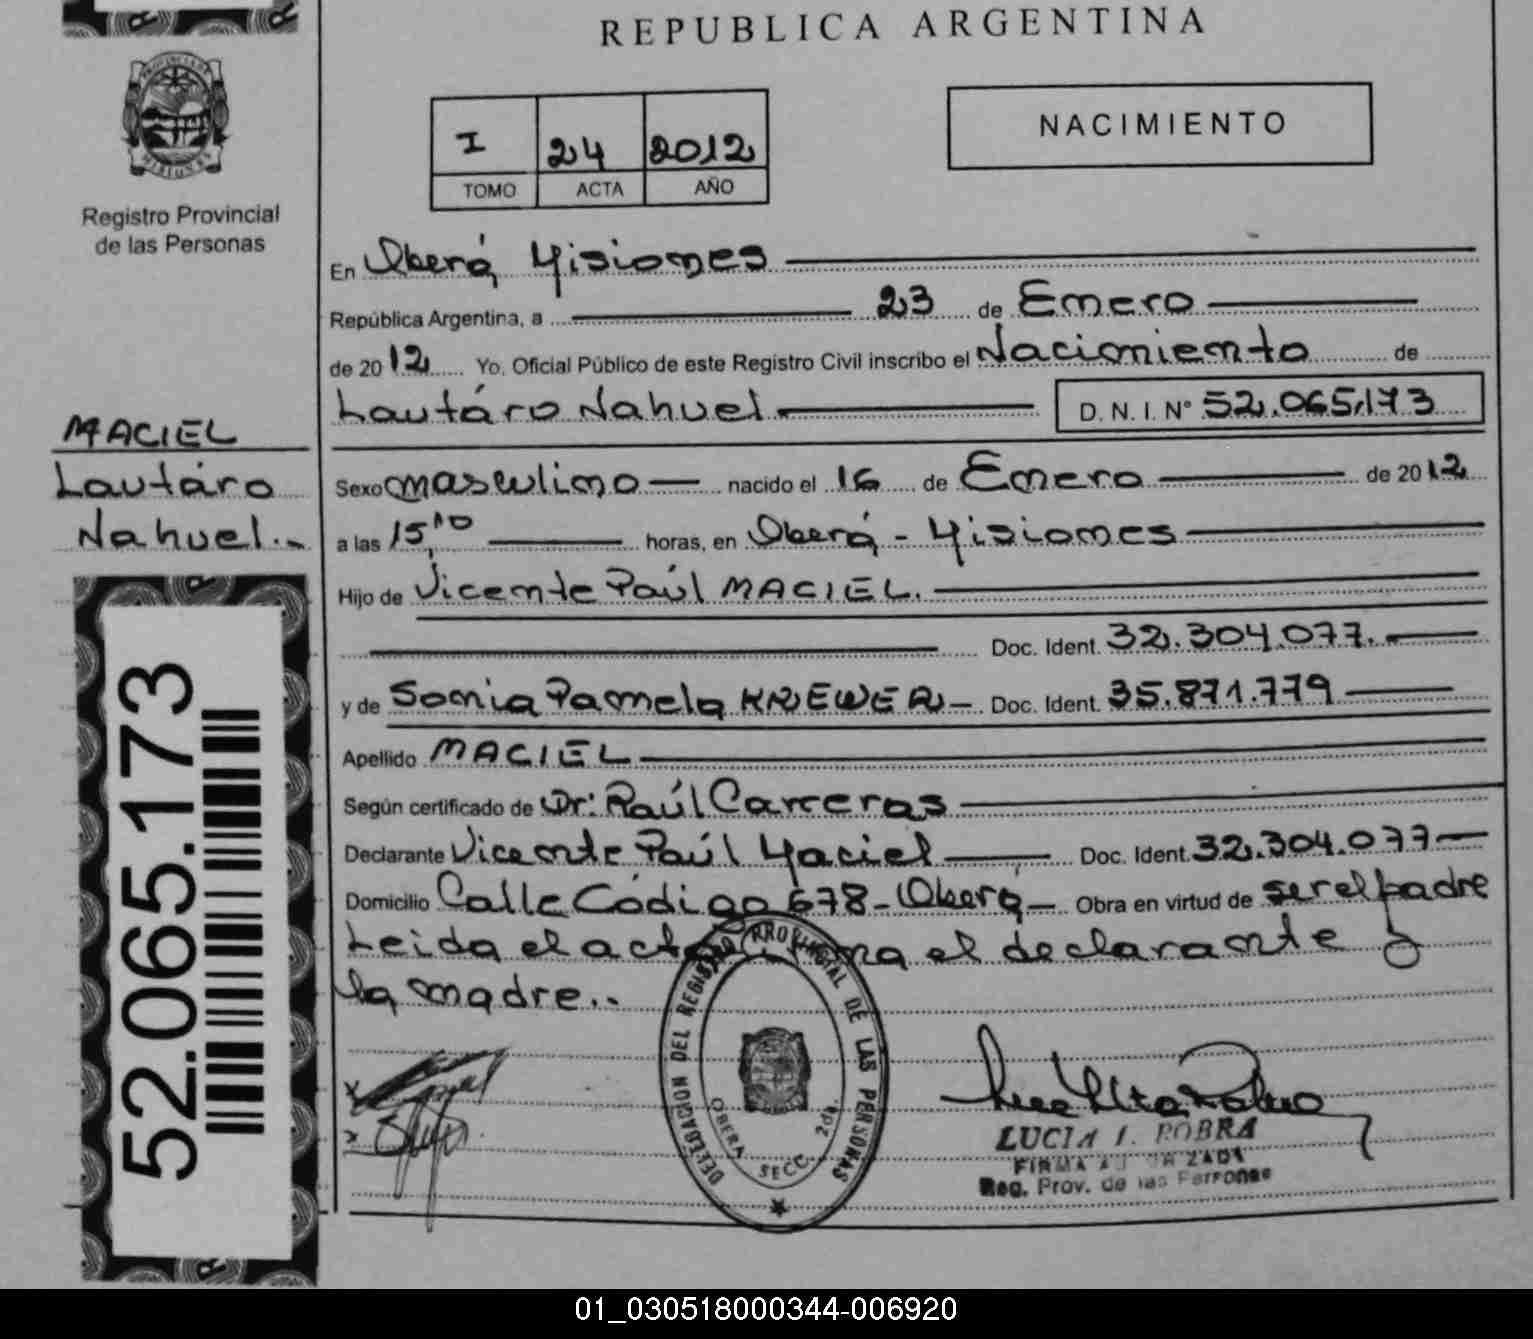 REPUBLICA ARGENTINA
PROVINCIA DE
MISIONES
Registro Provincial
de las Personas
I 24 2012
TOMO ACTA AÑO
NACIMIENTO
En Oberá, Misiones
República Argentina, a 23 de Enero
de 2012 Yo, Oficial Público de este Registro Civil inscribo el Nacimiento de
Lautáro Nahuel D. N. I. N° 52.065.173
MACIEL
Lautáro
Nahuel.-
Sexo masculino nacido el 16 de Enero de 2012
a las 15,10 horas, en Oberá - Misiones
Hijo de Vicente Paúl MACIEL.
Doc. Ident. 32.304.077.
y de Sonia Pamela KREWER Doc. Ident. 35.871.779
Apellido MACIEL
Según certificado de Dr: Raúl Carreras
Declarante Vicente Paúl Maciel Doc. Ident. 32.304.077
Domicilio Calle Código 678-Oberá Obra en virtud de ser el padre
Leida el acta firma el declarante y
la madre..
52.065.173
DELEGACION DEL REGISTRO PROVINCIAL DE LAS PERSONAS
OBERA SECC. 2da.
LUCIA I. ROBRA
FIRMA AUTORIZADA
Reg. Prov. de las Personas
01_030518000344-006920